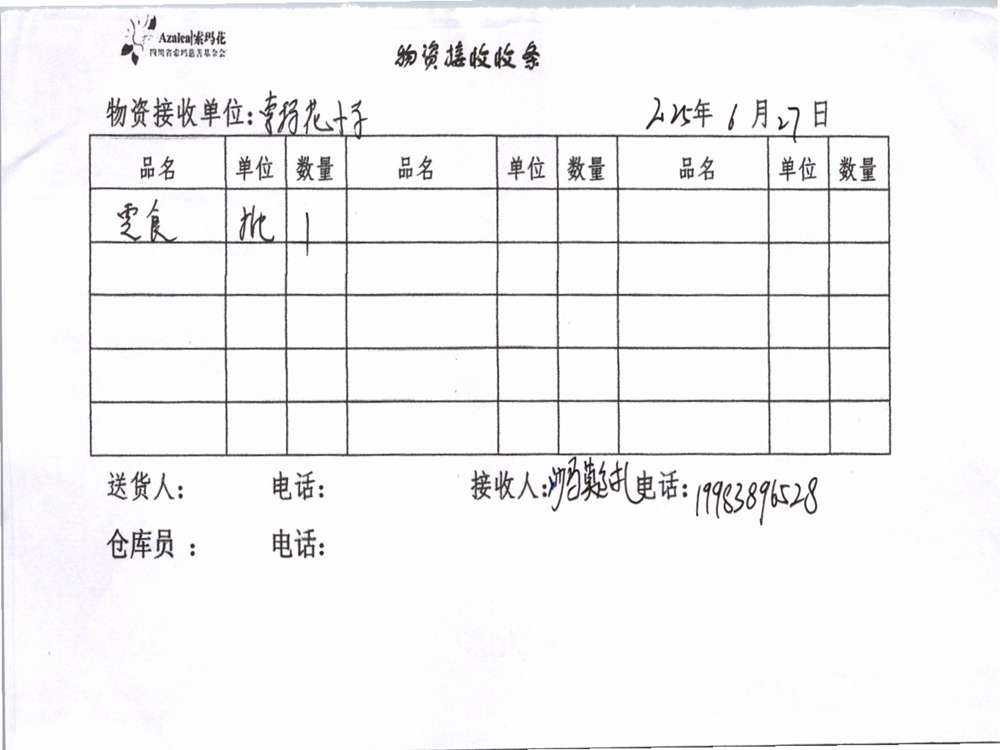 Azalea|索玛花
四川省索玛慈善基金会
物资接收收条
物资接收单位:索玛花十子
2025年 6 月 27 日
品名 单位 数量 品名 单位 数量 品名 单位 数量
零食 批 1
送货人: 电话: 接收人: 电话: 19983896528
仓库员 : 电话: